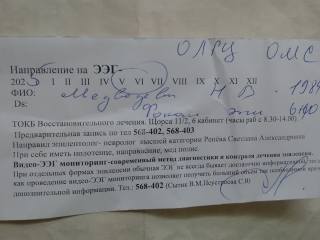 ОЛРЦ ОМС
Направление на ЭЭГ-
2025 I II III IV V VI VII VIII IX X XI XII
ФИО: Н В. 198
Ds: эпи
ТОКБ Восстановительного лечения. Щорса 11/2, 6 кабинет (часы раб с 8.30-14.00)
Предварительная запись по тел 568-402, 568-403
Направил эпилептолог- невролог высшей категории Ренёва Светлана Александровна
При себе иметь полотенце, направление, мед полис.
Видео-ЭЭГ мониторинг-современный метод диагностики и контроля лечения эпилепсии.
При отдельных формах эпилепсии обычная ЭЭГ не всегда бывает достаточно информативна, тогда
как проведение видео-ЭЭГ мониторинга позволяет получить больший объем так необходимой врачу
дополнительной информации. Тел: 568-402 (Сычик В.М.